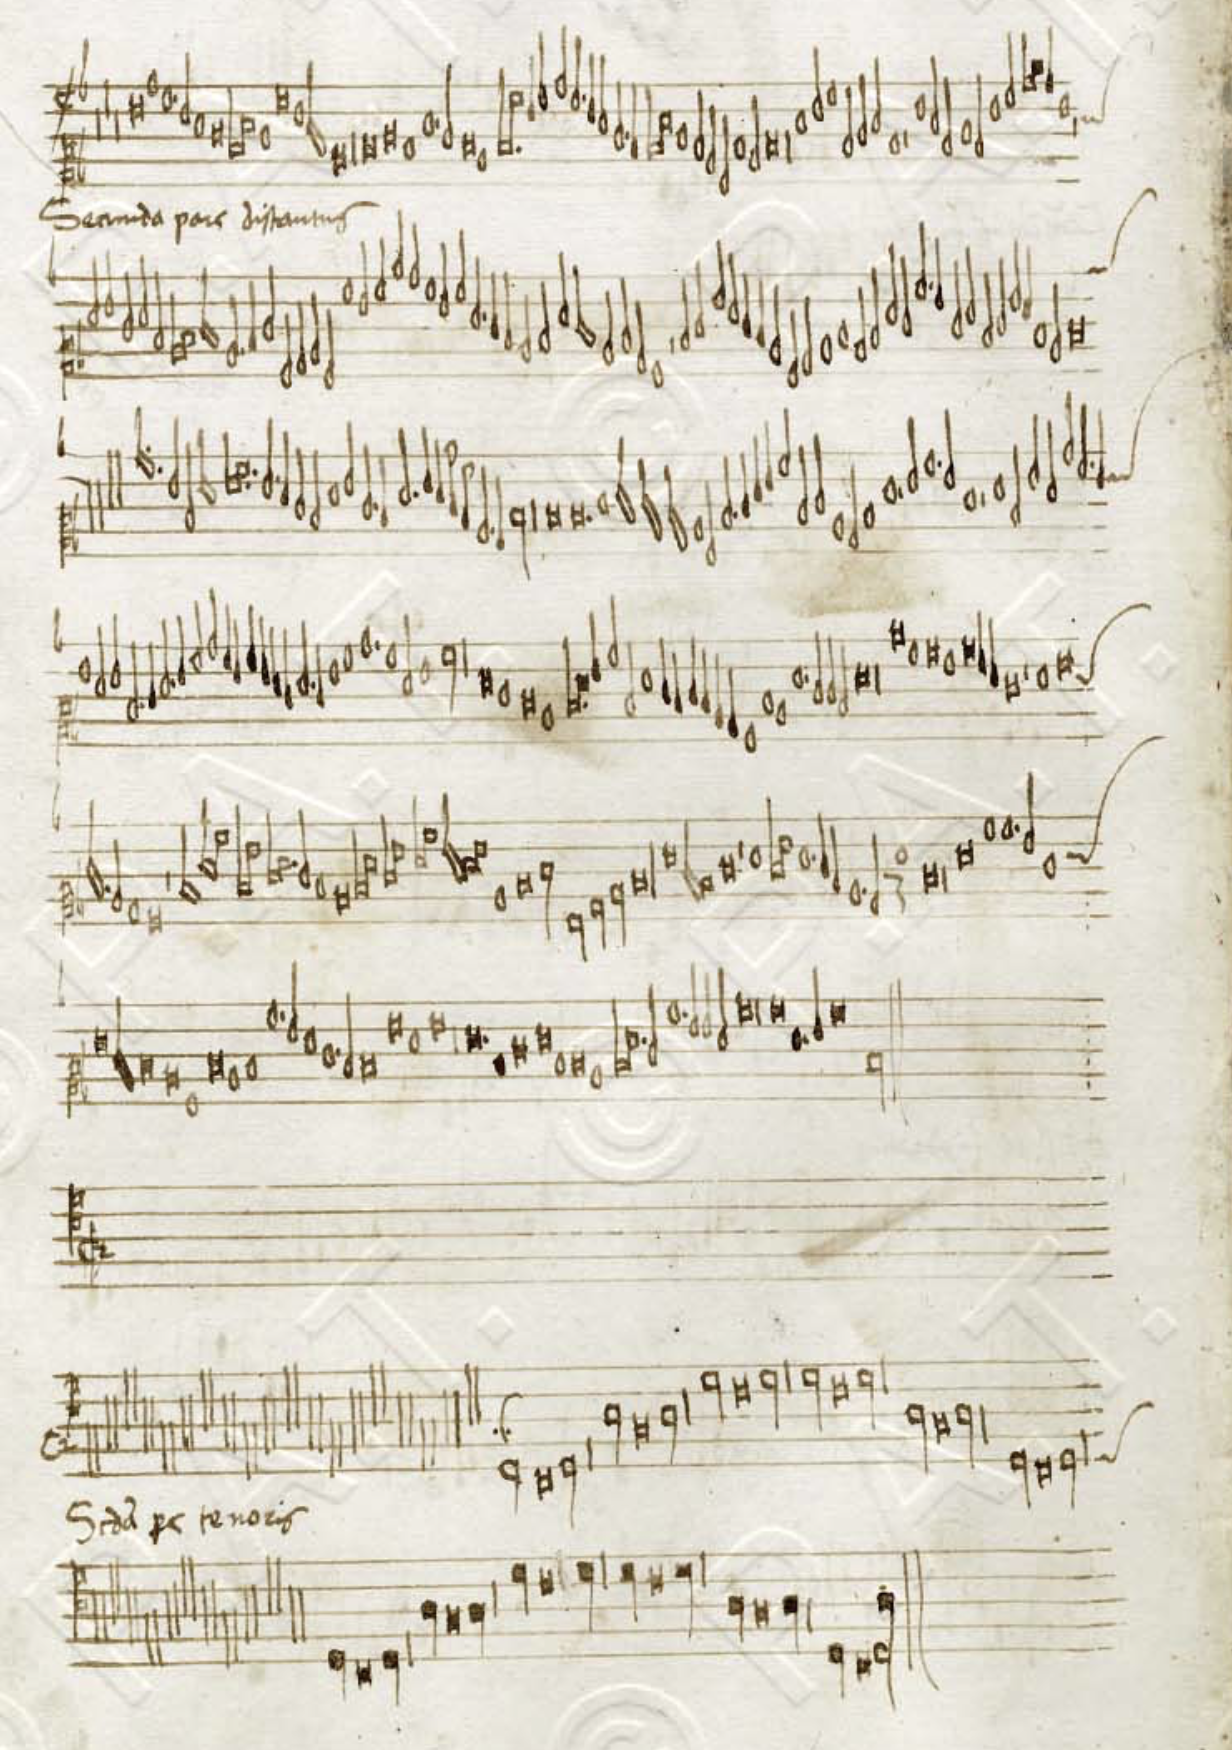 Secunda pars distantus
Scdã ps tenoris